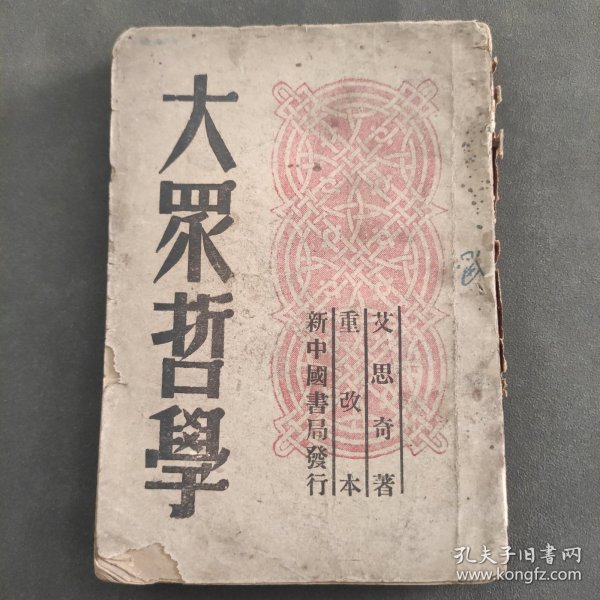 大眾哲學
艾思奇著
重改本
新中國書局發行
孔夫子旧书网
www.kongfz.com